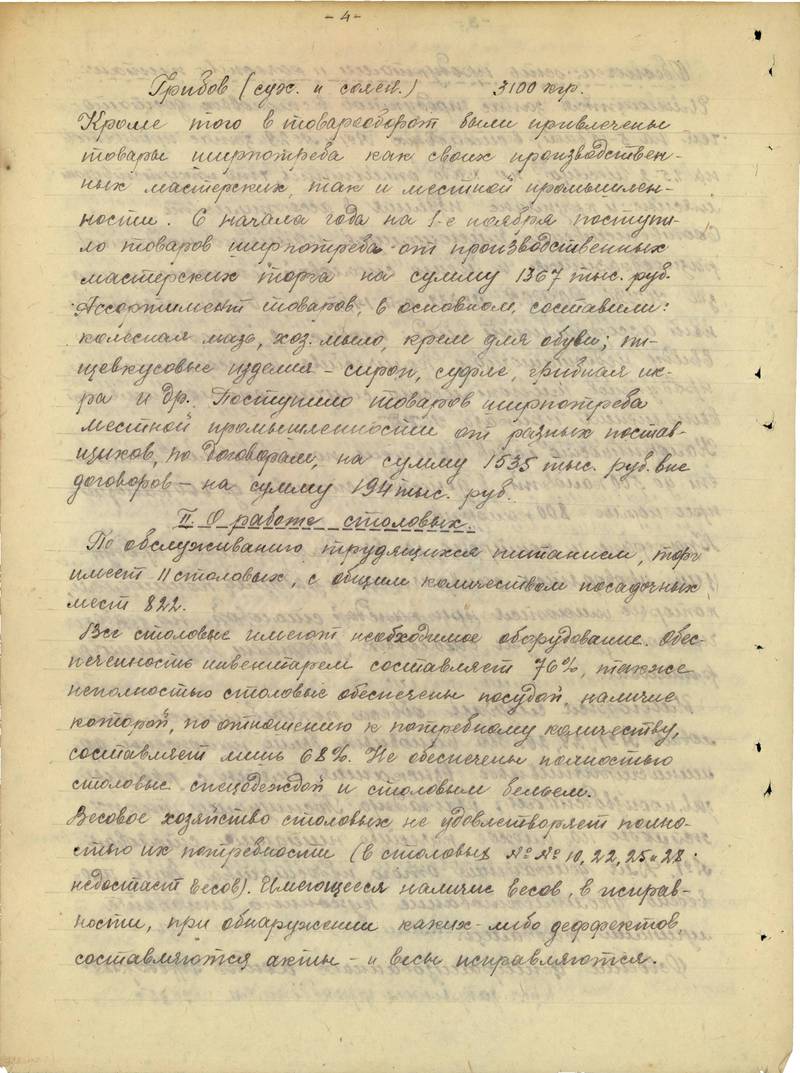 - 4 -
Грибов (суж. и солен.) 3100 кгр.
Кроме того в товарооборот были привлечены
товары ширпотреба как своих производствен-
ных мастерских, так и местной промышлен-
ности. С начала года на 1-е ноября поступи-
ло товаров ширпотреба от производственных
мастерских торга на сумму 1367 тыс. руб.
Ассортимент товаров, в основном, составили:
колесная мазь, хоз. мыло, крем для обуви; пи-
щевкусовые изделия - сироп, суфле, грибная ик-
ра и др. Поступило товаров ширпотреба
местной промышленности от разных постав-
щиков, по договорам, на сумму 1535 тыс. руб. вне
договоров - на сумму 194 тыс. руб.
II. О работе столовых.
По обслуживанию трудящихся питанием, торг
имеет 11 столовых, с общим количеством посадочных
мест 822.
Все столовые имеют необходимое оборудование. Обес-
печенность инвентарем составляет 76%, также
неполностью столовые обеспечены посудой, наличие
которой, по отношению к потребному количеству,
составляет лишь 68%. Не обеспечены полностью
столовые спецодеждой и столовым бельем.
Весовое хозяйство столовых не удовлетворяет полно-
стью их потребности (в столовых №№ 10, 22, 25 и 27
недостает весов). Имеющееся наличие весов, в исправ-
ности, при обнаружении каких-либо деффектов
составляются акты - и весы исправляются.